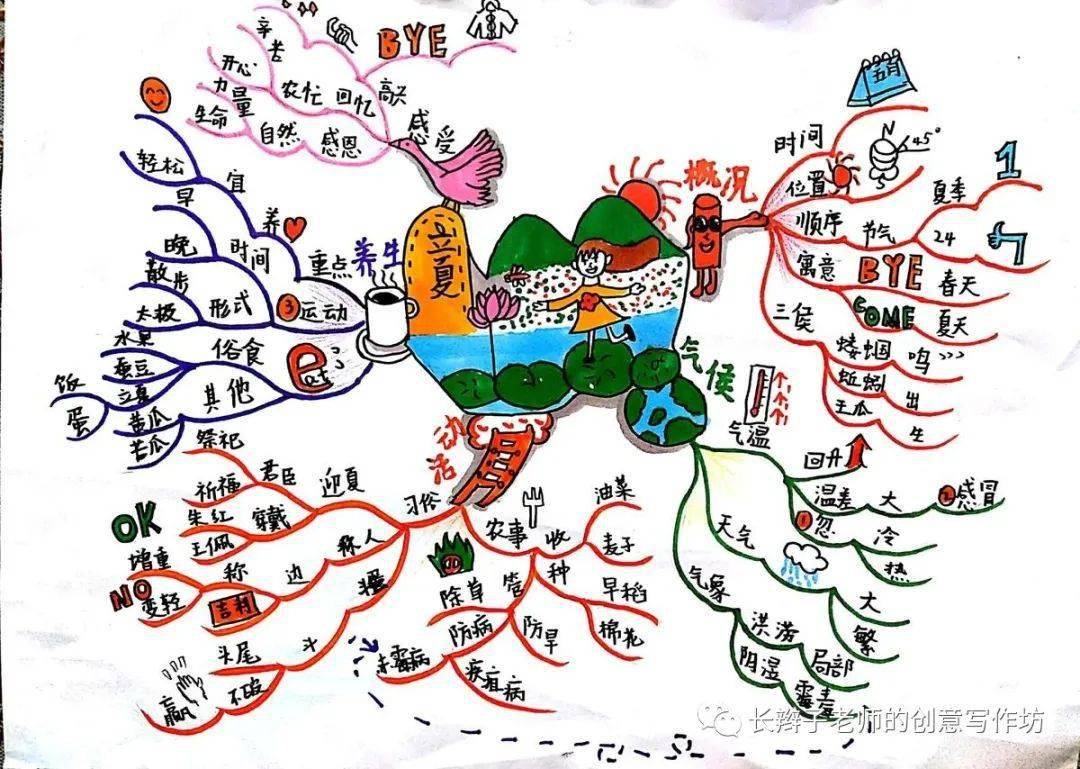 立夏
概况
时间
五月
位置
N
45°
S
顺序
节气
夏季
1
24
寓意
BYE
春天
COME
夏天
三侯
蝼蝈
鸣
蚯蚓
出
王瓜
生
气侯
气温
回升
温差
大
②感冒
①忽
冷
热
天气
大
繁
气象
洪涝
局部
阴湿
活动
习俗
迎夏
君臣
祭祀
祈福
穿戴
朱红
玉佩
称人
称
边
OK
增重
NO
变轻
吉利
蛋
斗
头尾
不破
赢
农事
收
油菜
麦子
种
早稻
棉花
管
除草
防病
防旱
赤霉病
疾疽病
养生
重点
养
宜
轻松
时间
早
晚
③运动
形式
散步
太极
eat
俗食
水果
蚕豆
其他
立夏
饭
蛋
黄瓜
苦瓜
感受
高兴
BYE
回忆
农忙
辛苦
开心
感恩
自然
力量
生命
长辫子老师的创意写作坊